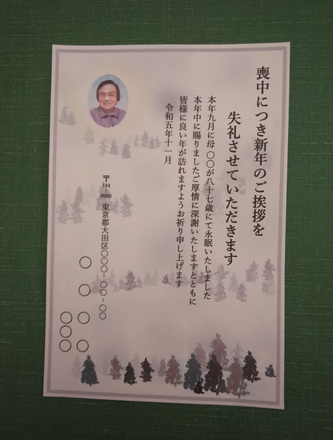 喪中につき新年のご挨拶を
失礼させていただきます
本年九月に母 〇〇が八十七歳にて永眠いたしました
本年中に賜りましたご厚情に深謝いたしますとともに
皆様に良い年が訪れますようお祈り申し上げます
令和五年十一月
〒144-0000 東京都大田区〇〇〇-〇〇-〇〇
〇〇 〇〇
〇〇〇